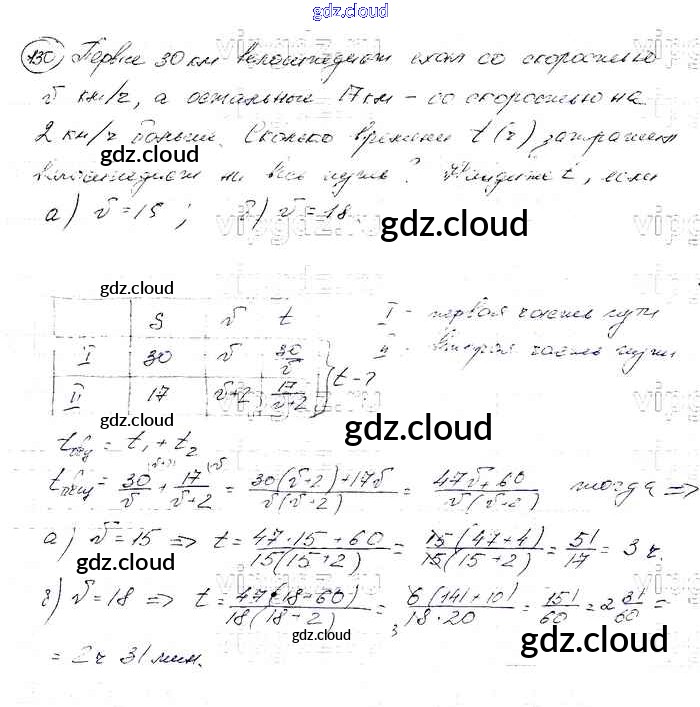 gdz.cloud
130) Первые 30 км велосипедист ехал со скоростью
v км/ч, а остальные 17 км – со скоростью на
2 км/ч больше. Сколько времени t (ч) затратил
gdz.cloud
велосипедист на весь путь? Найдите t, если
а) v = 15 ; б) v = 18.
gdz.cloud
gdz.cloud
S v t
I 30 v 30/v
II 17 v+2 17/(v+2) } t - ?
I - первая часть пути
II - вторая часть пути
gdz.cloud
gdz.cloud
t общ = t₁ + t₂
t общ = 30/v + 17/(v+2) = (30(v+2)+17v)/(v(v+2)) = (47v+60)/(v(v+2)) тогда =>
а) v = 15 => t = (47·15+60)/(15(15+2)) = (15(47+4))/(15(15+2)) = 51/17 = 3 ч.
gdz.cloud
б) v = 18 => t = (47(18+60))/(18(18-2)) = (6(141+10))/(18·20) = 151/60 = 2 31/60 =
gdz.cloud
gdz.cloud
= 2ч 31 мин.